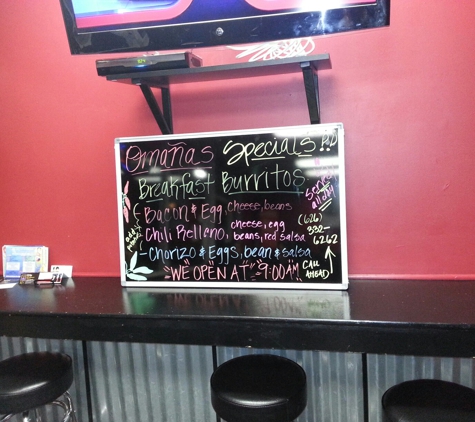 Omañas Specials!!
Breakfast Burritos
Served all day
{Bacon & Egg, cheese, beans
{Chili Relleno, cheese, egg
beans, red salsa
{Chorizo & Eggs, bean & salsa
add potato
"WE OPEN AT" "9:00AM"
(626)
332-
6262
CALL
AHEAD